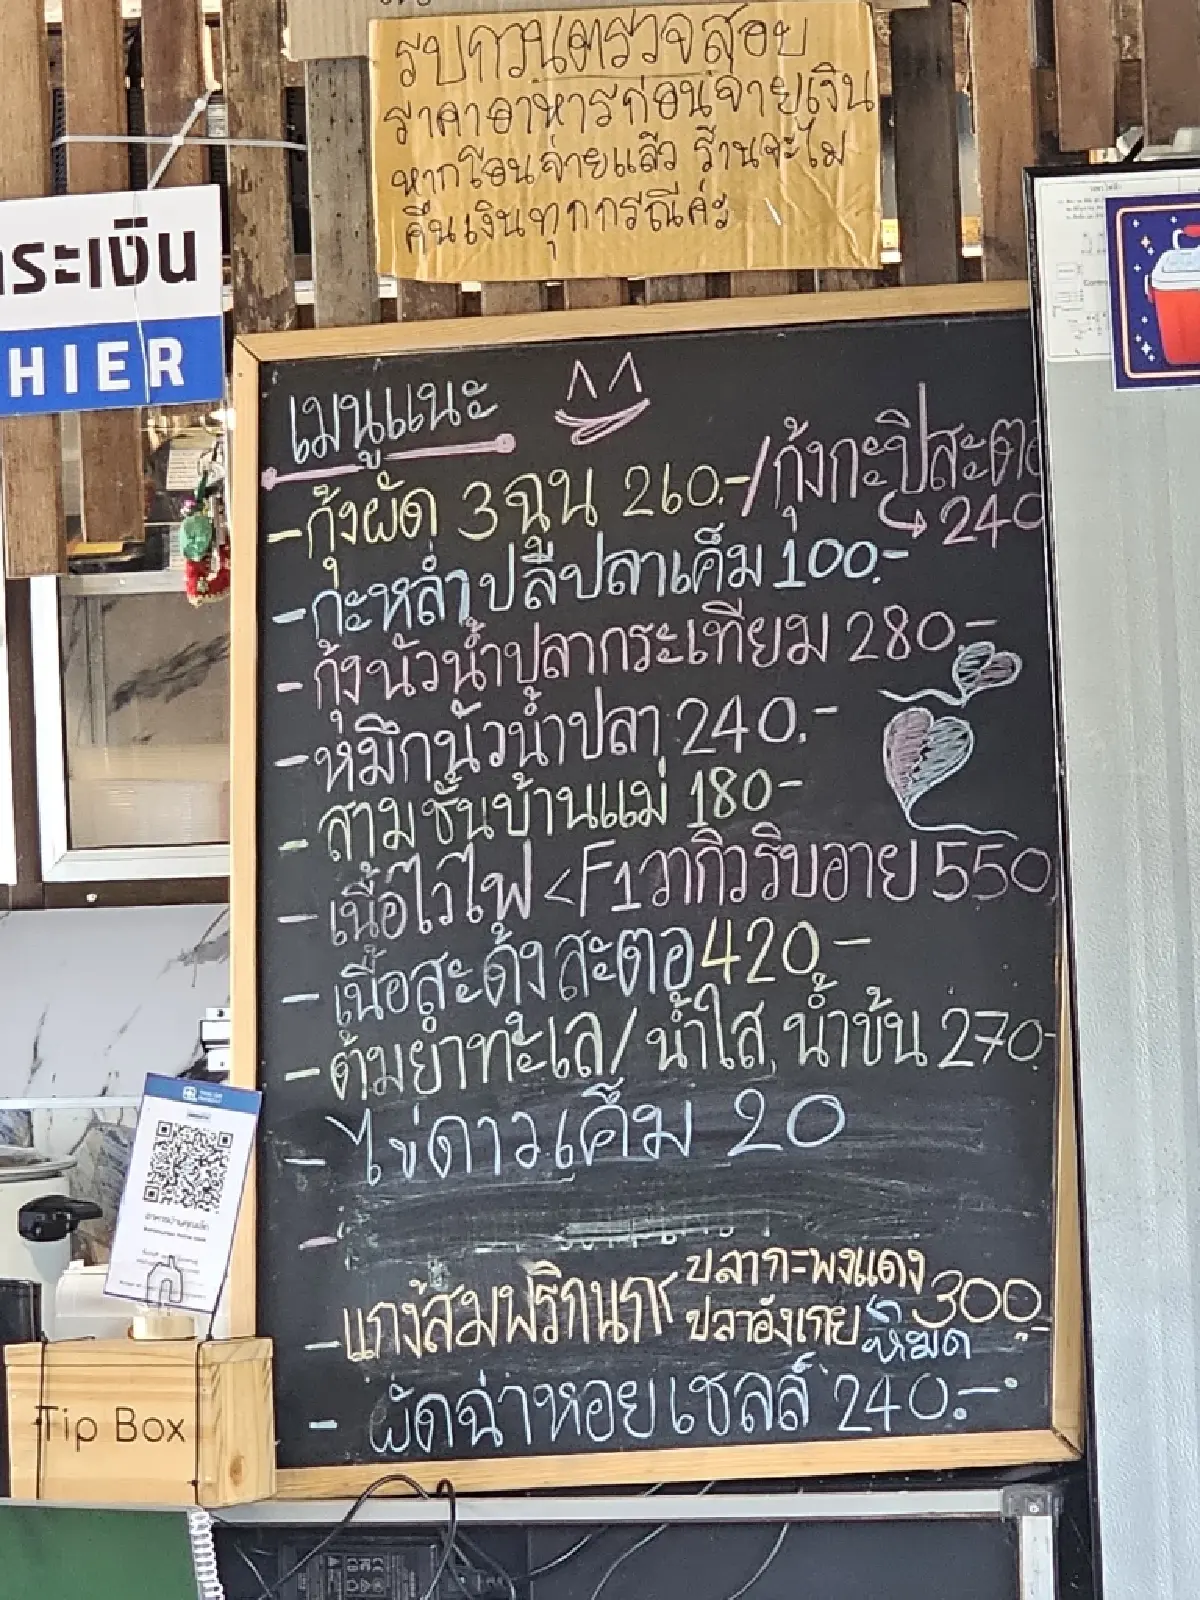 รบกวนตรวจสอบ
ราคาอาหารก่อนจ่ายเงิน
หากโอนจ่ายแล้ว ร้านจะไม่
คืนเงินทุกกรณีค่ะ
ระเงิน
HIER
เมนูแนะ
-กุ้งผัด 3ฉุน 260.-/กุ้งกะปิสะตอ
240
-กะหล่ำปลีปลาเค็ม 100.-
-กุ้งนัวน้ำปลากระเทียม 280.-
-หมึกนัวน้ำปลา 240.-
-สามชั้นบ้านแม่ 180-
-เนื้อไวไฟ <F1วากิวริบอาย 550
-เนื้อสะดุ้งสะตอ 420-
-ต้มยำทะเล/น้ำใส, น้ำข้น 270.-
-ไข่ดาวเค็ม 20
-แกงส้มพริกนก ปลากะพงแดง 300.-
ปลาอังเกย
หมด
- ผัดฉ่าหอยเชลล์ 240.-
Tip Box